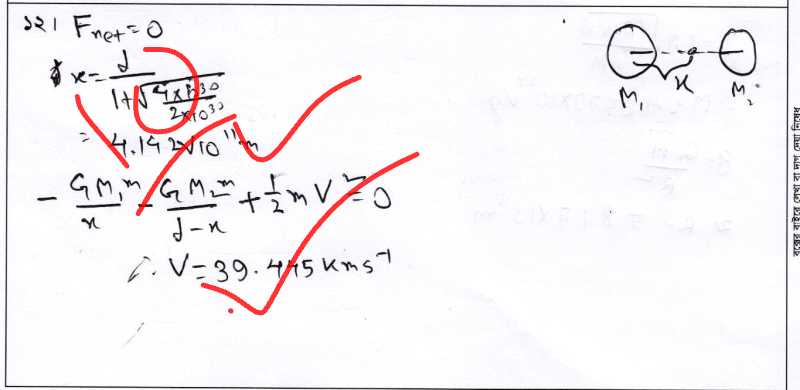 ১২। F_net = 0
x = d / (1+√(4×10^30 / 2×10^30))
= 4.142×10^11 m
- GM₁m/x - GM₂m/(d-x) + 1/2 m V² = 0
∴ V = 39.445 Kms⁻¹
x
M₁ M₂
বক্সের বাইরে লেখা বা দাগ দেয়া নিষেধ